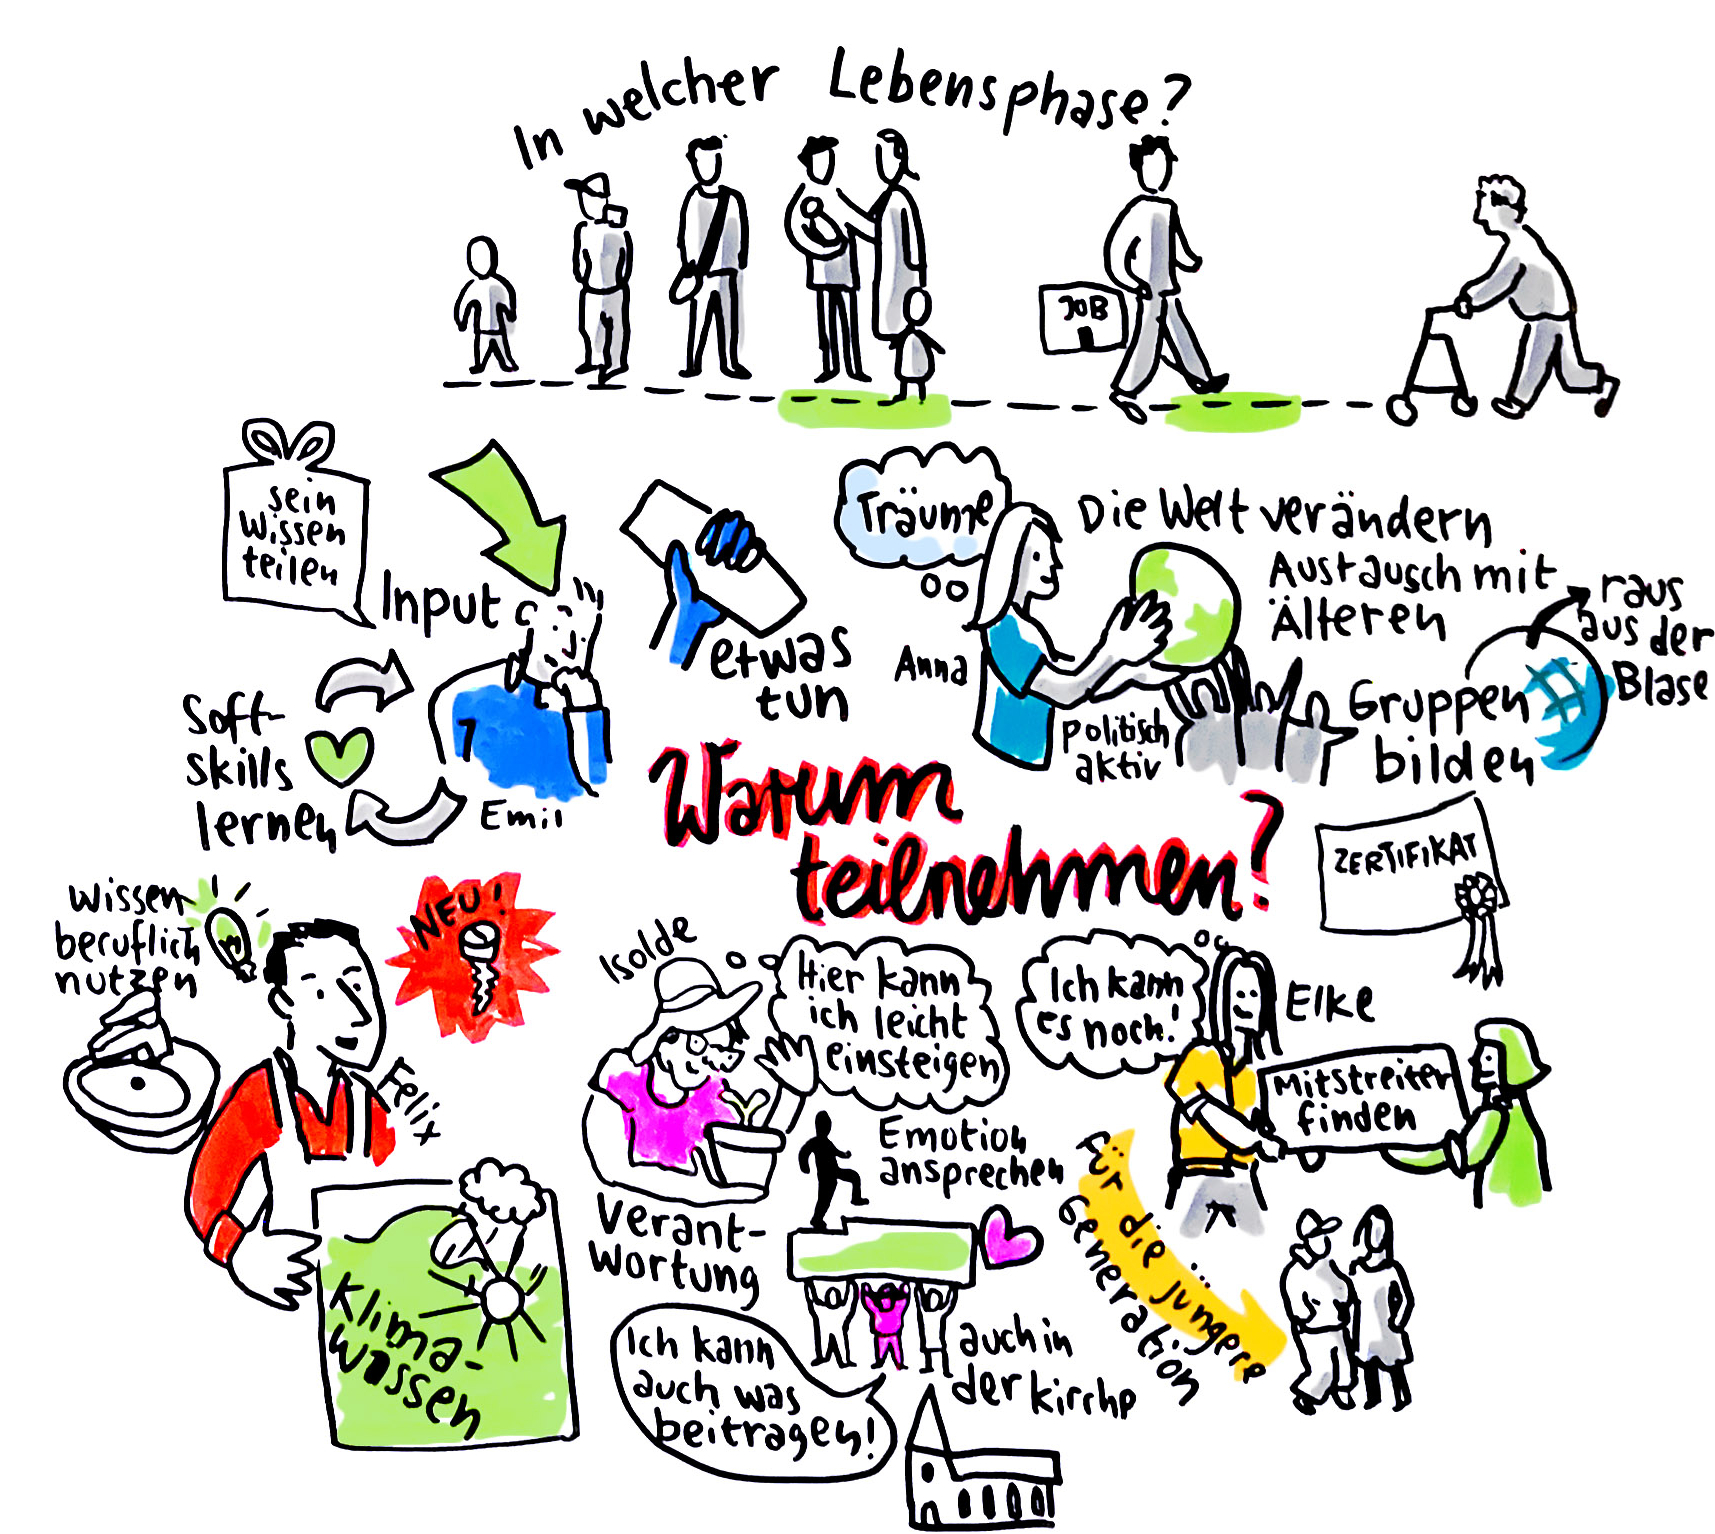 In welcher Lebensphase?
JOB
sein
Wissen
teilen
Input
etwas
tun
Soft-
skills
lernen
Emil
Träume
Die Welt verändern
Austausch mit
Älteren
raus
aus der
Blase
Anna
politisch
aktiv
Gruppen
bilden
Warum
teilnehmen?
ZERTIFIKAT
Wissen
beruflich
nutzen
NEU!
Felix
Klima-
wassen
Isolde
Hier kann
ich leicht
einsteigen
Emotion
ansprechen
Verant-
wortung
Ich kann
auch was
beitragen!
auch in
der Kirche
Ich kann
es noch!
Elke
Mitstreiter
finden
Für die jüngere
Generation